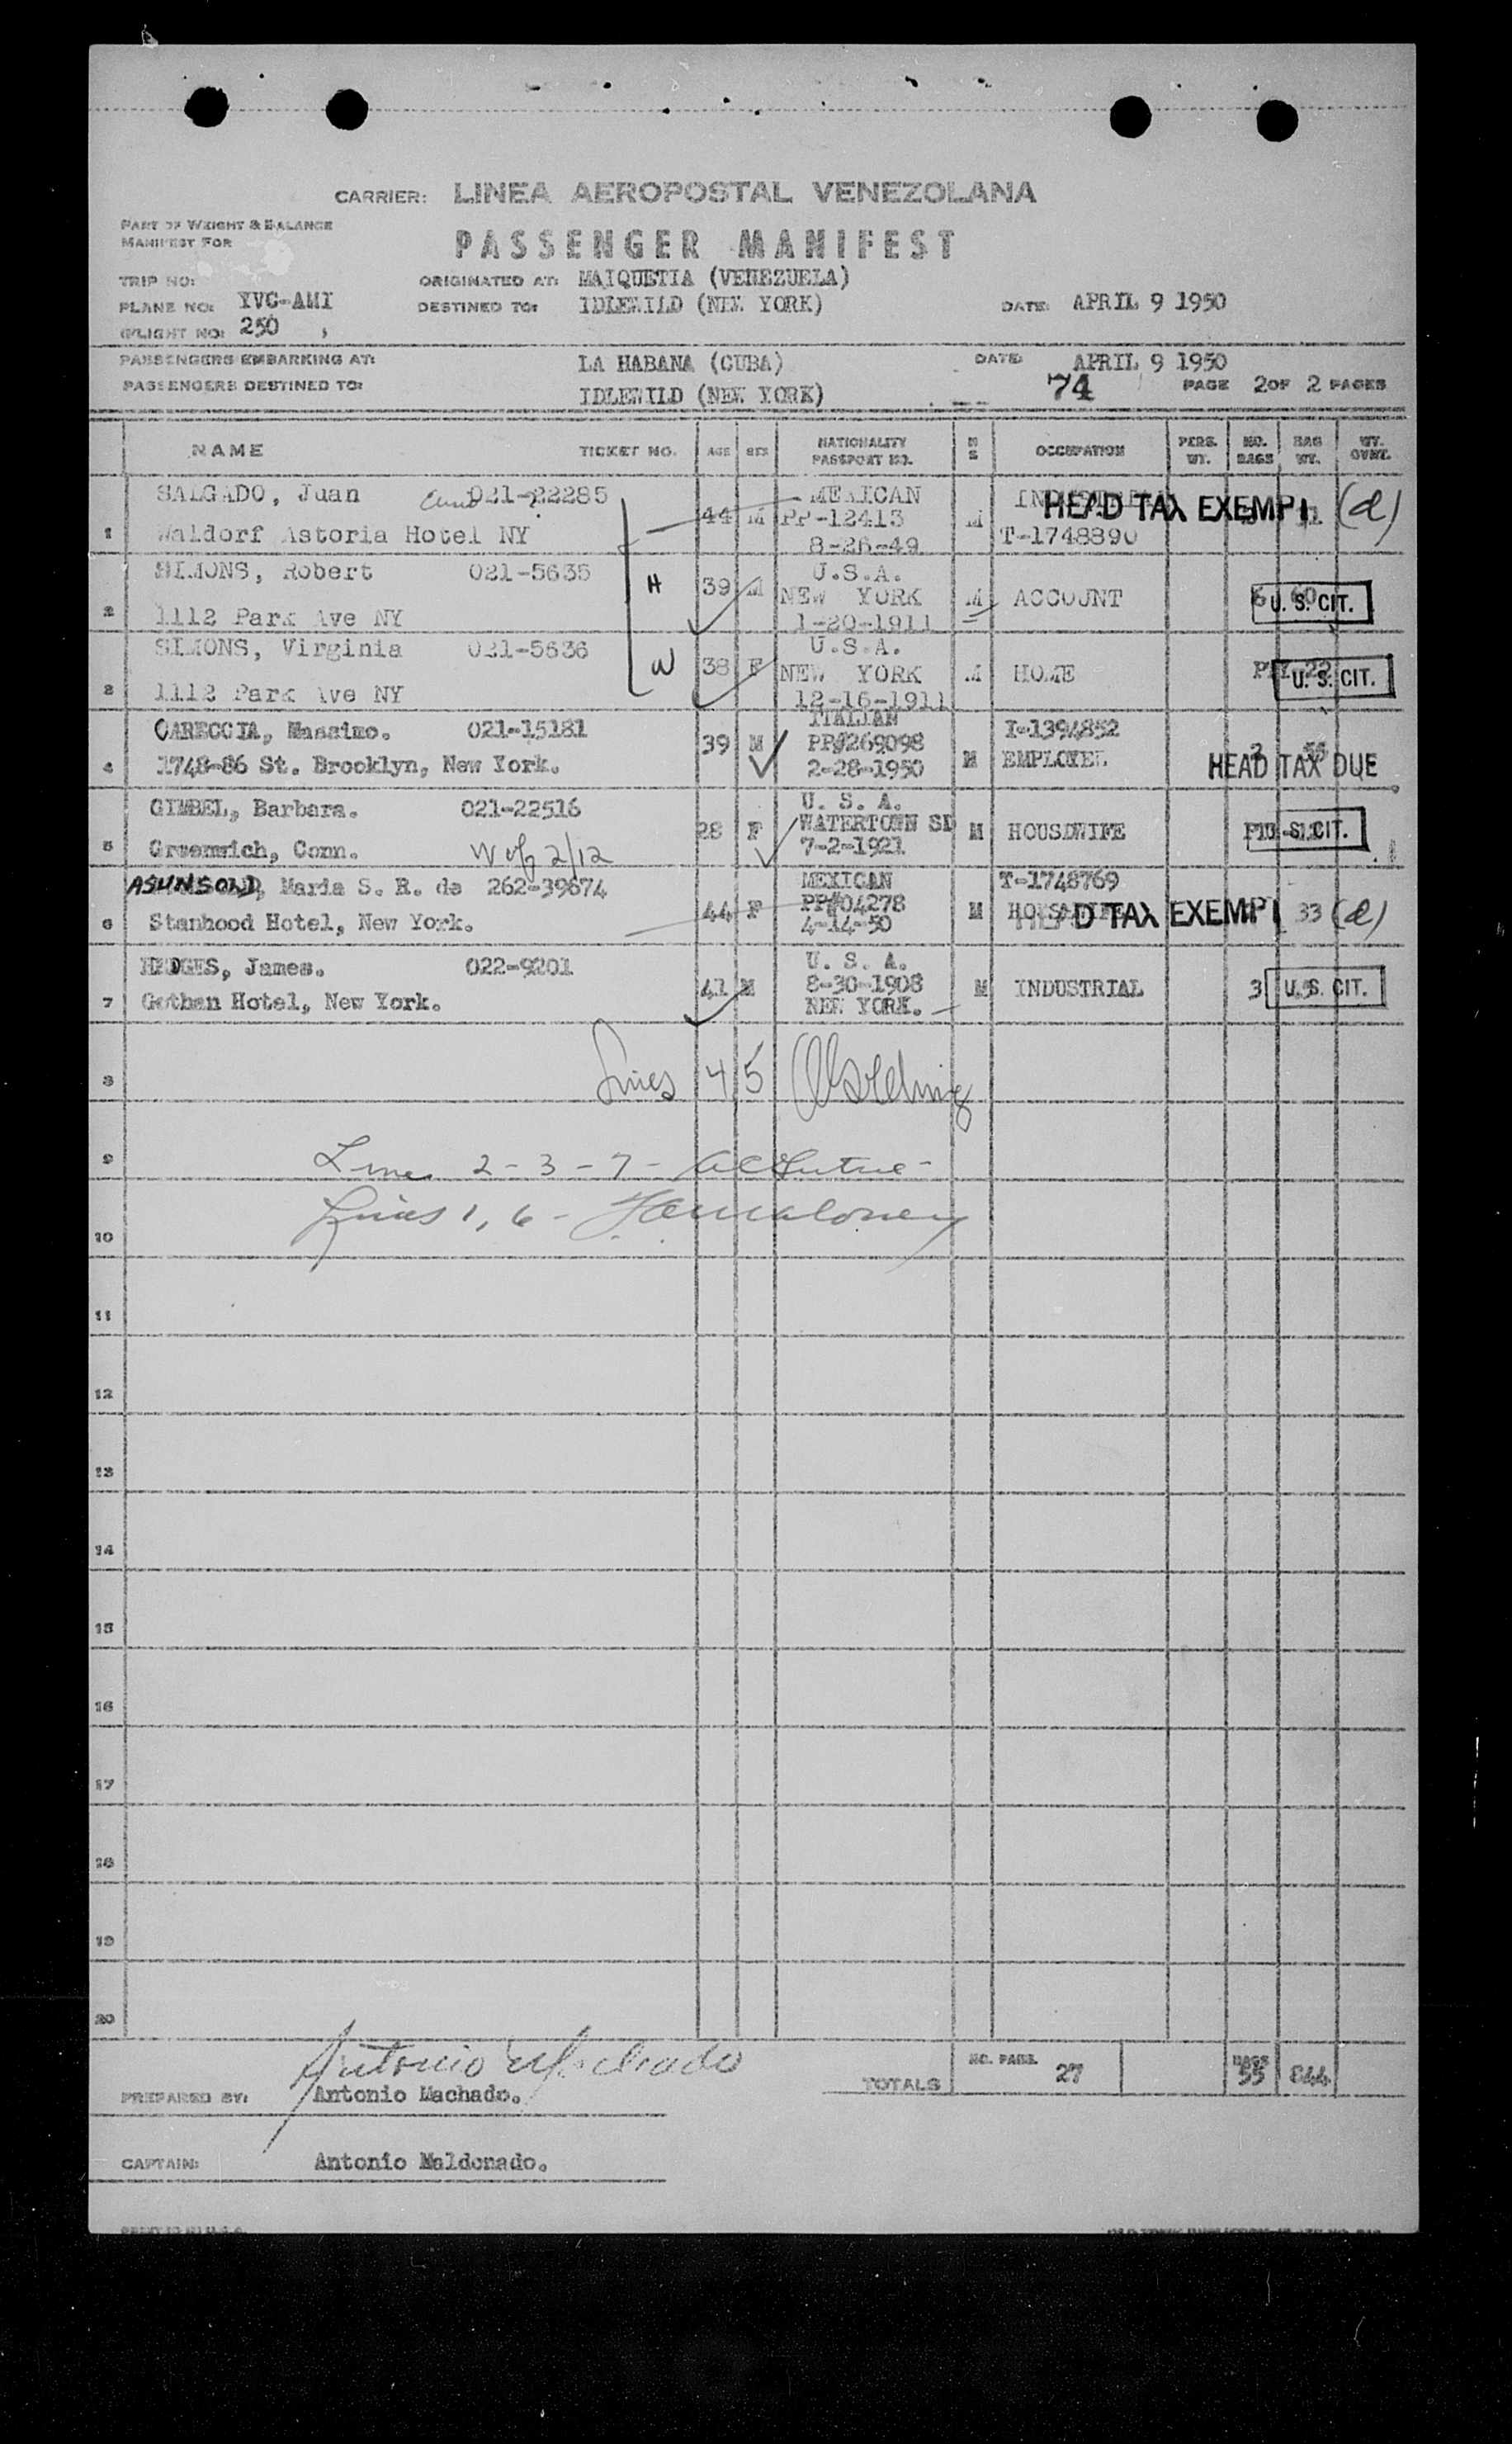 CARRIER: LINEA AEROPOSTAL VENEZOLANA
PART OF WEIGHT & BALANCE
MANIFEST FOR
PASSENGER MANIFEST
TRIP NO: ORIGINATED AT: MAIQUETIA (VENEZUELA)
PLANE NO: YVC-AMI DESTINED TO: IDLEWILD (NEW YORK) DATE: APRIL 9 1950
FLIGHT NO: 250
PASSENGERS EMBARKING AT: LA HABANA (CUBA) DATE: APRIL 9 1950
PASSENGERS DESTINED TO: IDLEWILD (NEW YORK) 74 PAGE 2 OF 2 PAGES
NAME TICKET NO. AGE SEX NATIONALITY PASSPORT NO. M S OCCUPATION PERS. WT. NO. BAGS BAG WT. WT. OVWT.
SALGADO, Juan 021-22285 MEXICAN
1 Waldorf Astoria Hotel NY 44 M PP-12413 M HEAD TAX EXEMPT (d)
8-26-49 T-1748890
SIMONS, Robert 021-5635 U.S.A.
H 39 M NEW YORK M ACCOUNT 6 60 U. S. CIT.
2 1112 Park Ave NY 1-20-1911
SIMONS, Virginia 021-5636 U.S.A.
W 38 F NEW YORK M HOME U. S. CIT.
3 1112 Park Ave NY 12-16-1911
CARECCIA, Massimo. 021-15181 ITALIAN I-1394852
39 M PP#269098
4 1748-86 St. Brooklyn, New York. 2-28-1950 M EMPLOYEE 2 55 HEAD TAX DUE
GIMBEL, Barbara. 021-22516 U. S. A.
28 F WATERTOWN SD M HOUSDWIFE U. S. CIT.
5 Greenwich, Conn. 7-2-1921
ASUNSOLO, Maria S. R. de 262-39674 MEXICAN T-1748769
44 F PP#04278 M HEAD TAX EXEMPT 33 (d)
6 Stanhood Hotel, New York. 4-14-50
HEDGES, James. 022-9201 U. S. A.
41 M 8-30-1908 M INDUSTRIAL 3 U. S. CIT.
7 Gothan Hotel, New York. NEW YORK.
8 Lines 4, 5
9 Lines 2-3-7-
Lines 1, 6 -
10
11
12
13
14
15
16
17
18
19
20
Antonio Machado
PREPARED BY: Antonio Machado. TOTALS NO. PASS. 27 BAGS 55 844
CAPTAIN: Antonio Maldonado.